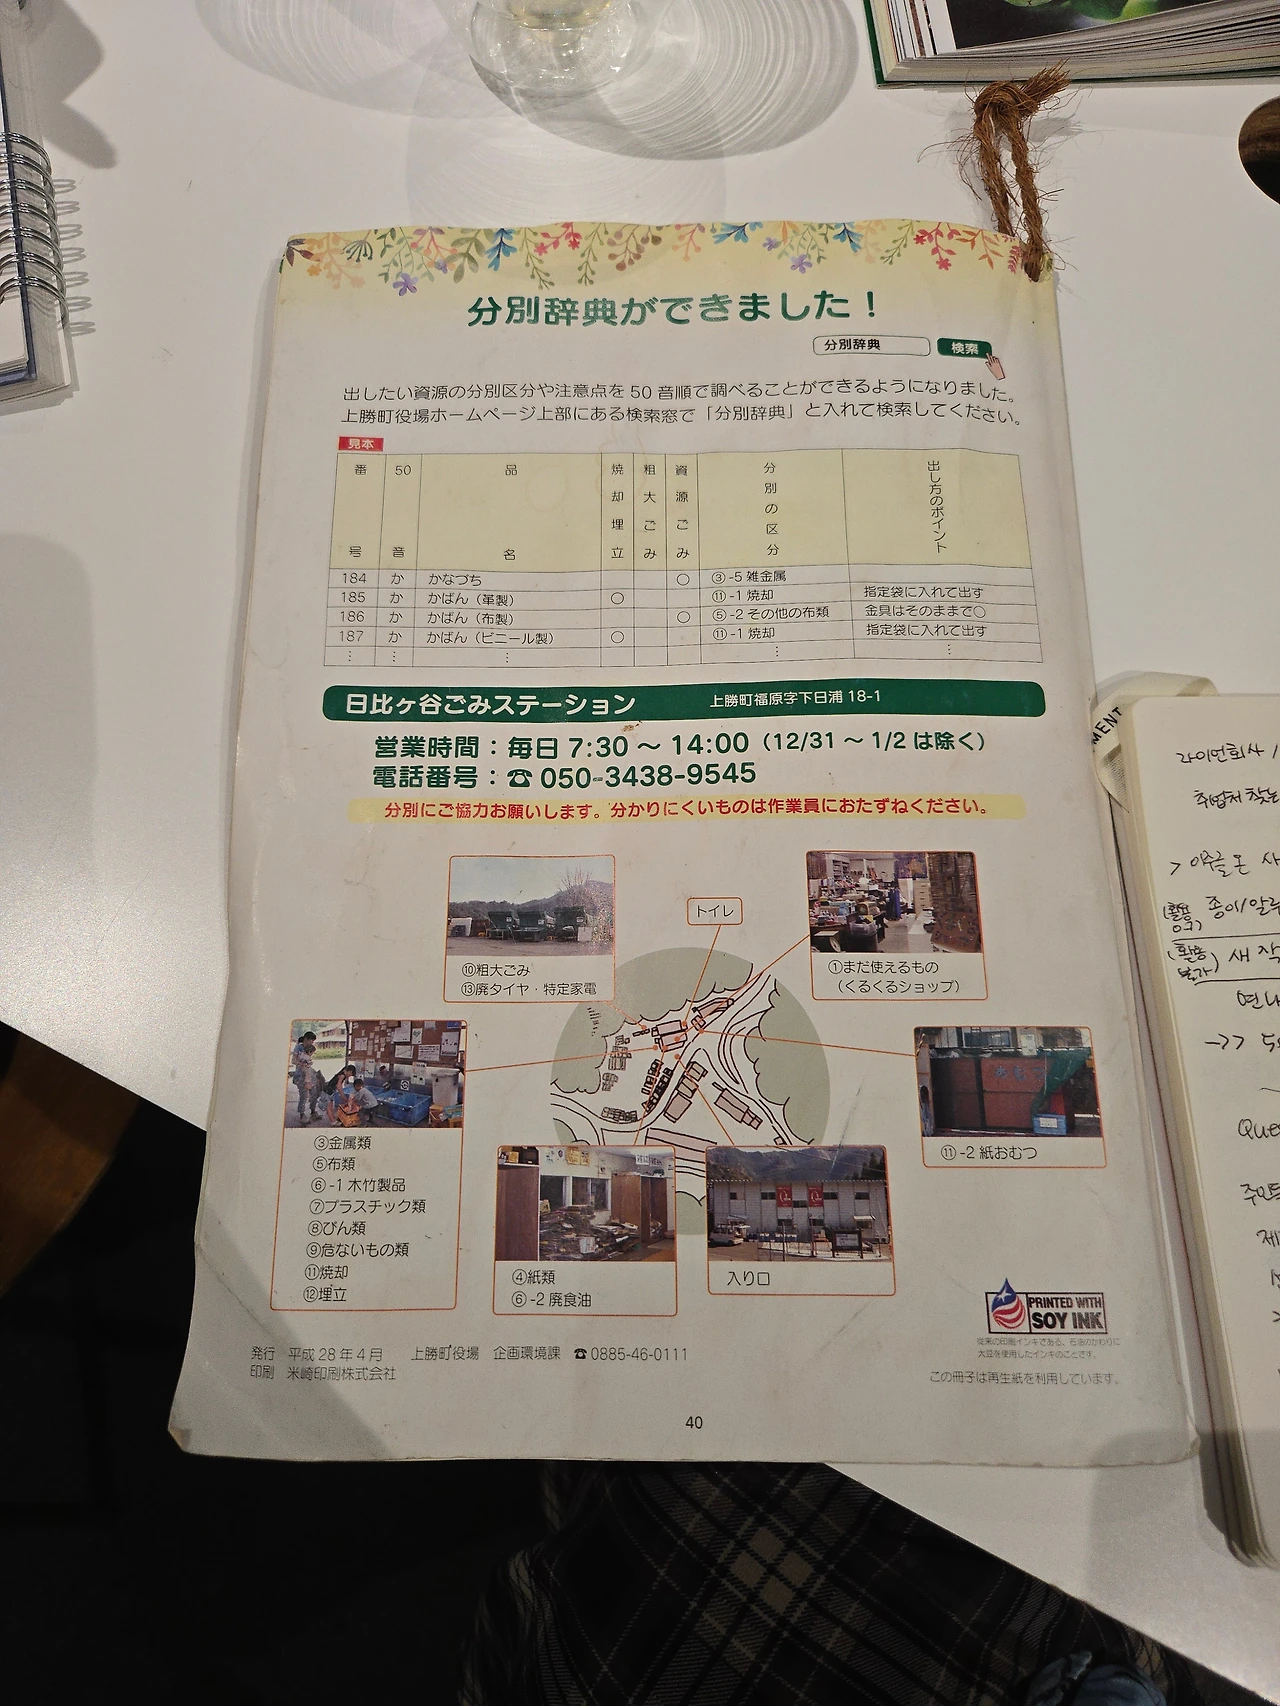 分別辞典ができました！
分別辞典 検索
出したい資源の分別区分や注意点を 50 音順で調べることができるようになりました。
上勝町役場ホームページ上部にある検索窓で「分別辞典」と入れて検索してください。
見本
番号 50音 品名 焼却埋立 粗大ごみ 資源ごみ 分別の区分 出し方のポイント
184 か かなづち ○ ③-5 雑金属
185 か かばん（革製） ○ ⑪-1 焼却 指定袋に入れて出す
186 か かばん（布製） ○ ⑤-2 その他の布類 金具はそのままで○
187 か かばん（ビニール製） ○ ⑪-1 焼却 指定袋に入れて出す
⋮ ⋮ ⋮ ⋮ ⋮
日比ヶ谷ごみステーション 上勝町福原字下日浦 18-1
営業時間：毎日 7:30 ～ 14:00（12/31 ～ 1/2 は除く）
電話番号：☎ 050-3438-9545
分別にご協力お願いします。分かりにくいものは作業員におたずねください。
トイレ
⑩粗大ごみ
⑬廃タイヤ・特定家電
①まだ使えるもの
（くるくるショップ）
③金属類
⑤布類
⑥-1 木竹製品
⑦プラスチック類
⑧びん類
⑨危ないもの類
⑪焼却
⑫埋立
⑪-2 紙おむつ
④紙類
⑥-2 廃食油
入り口
PRINTED WITH
SOY INK
従来の印刷インキである、石油のかわりに
大豆を使用したインキのことです。
この冊子は再生紙を利用しています。
発行 平成 28 年 4 月 上勝町役場 企画環境課 ☎ 0885-46-0111
印刷 米崎印刷株式会社
40
MENT
라이언회사
취업처 찾는
종이/알루
새 작